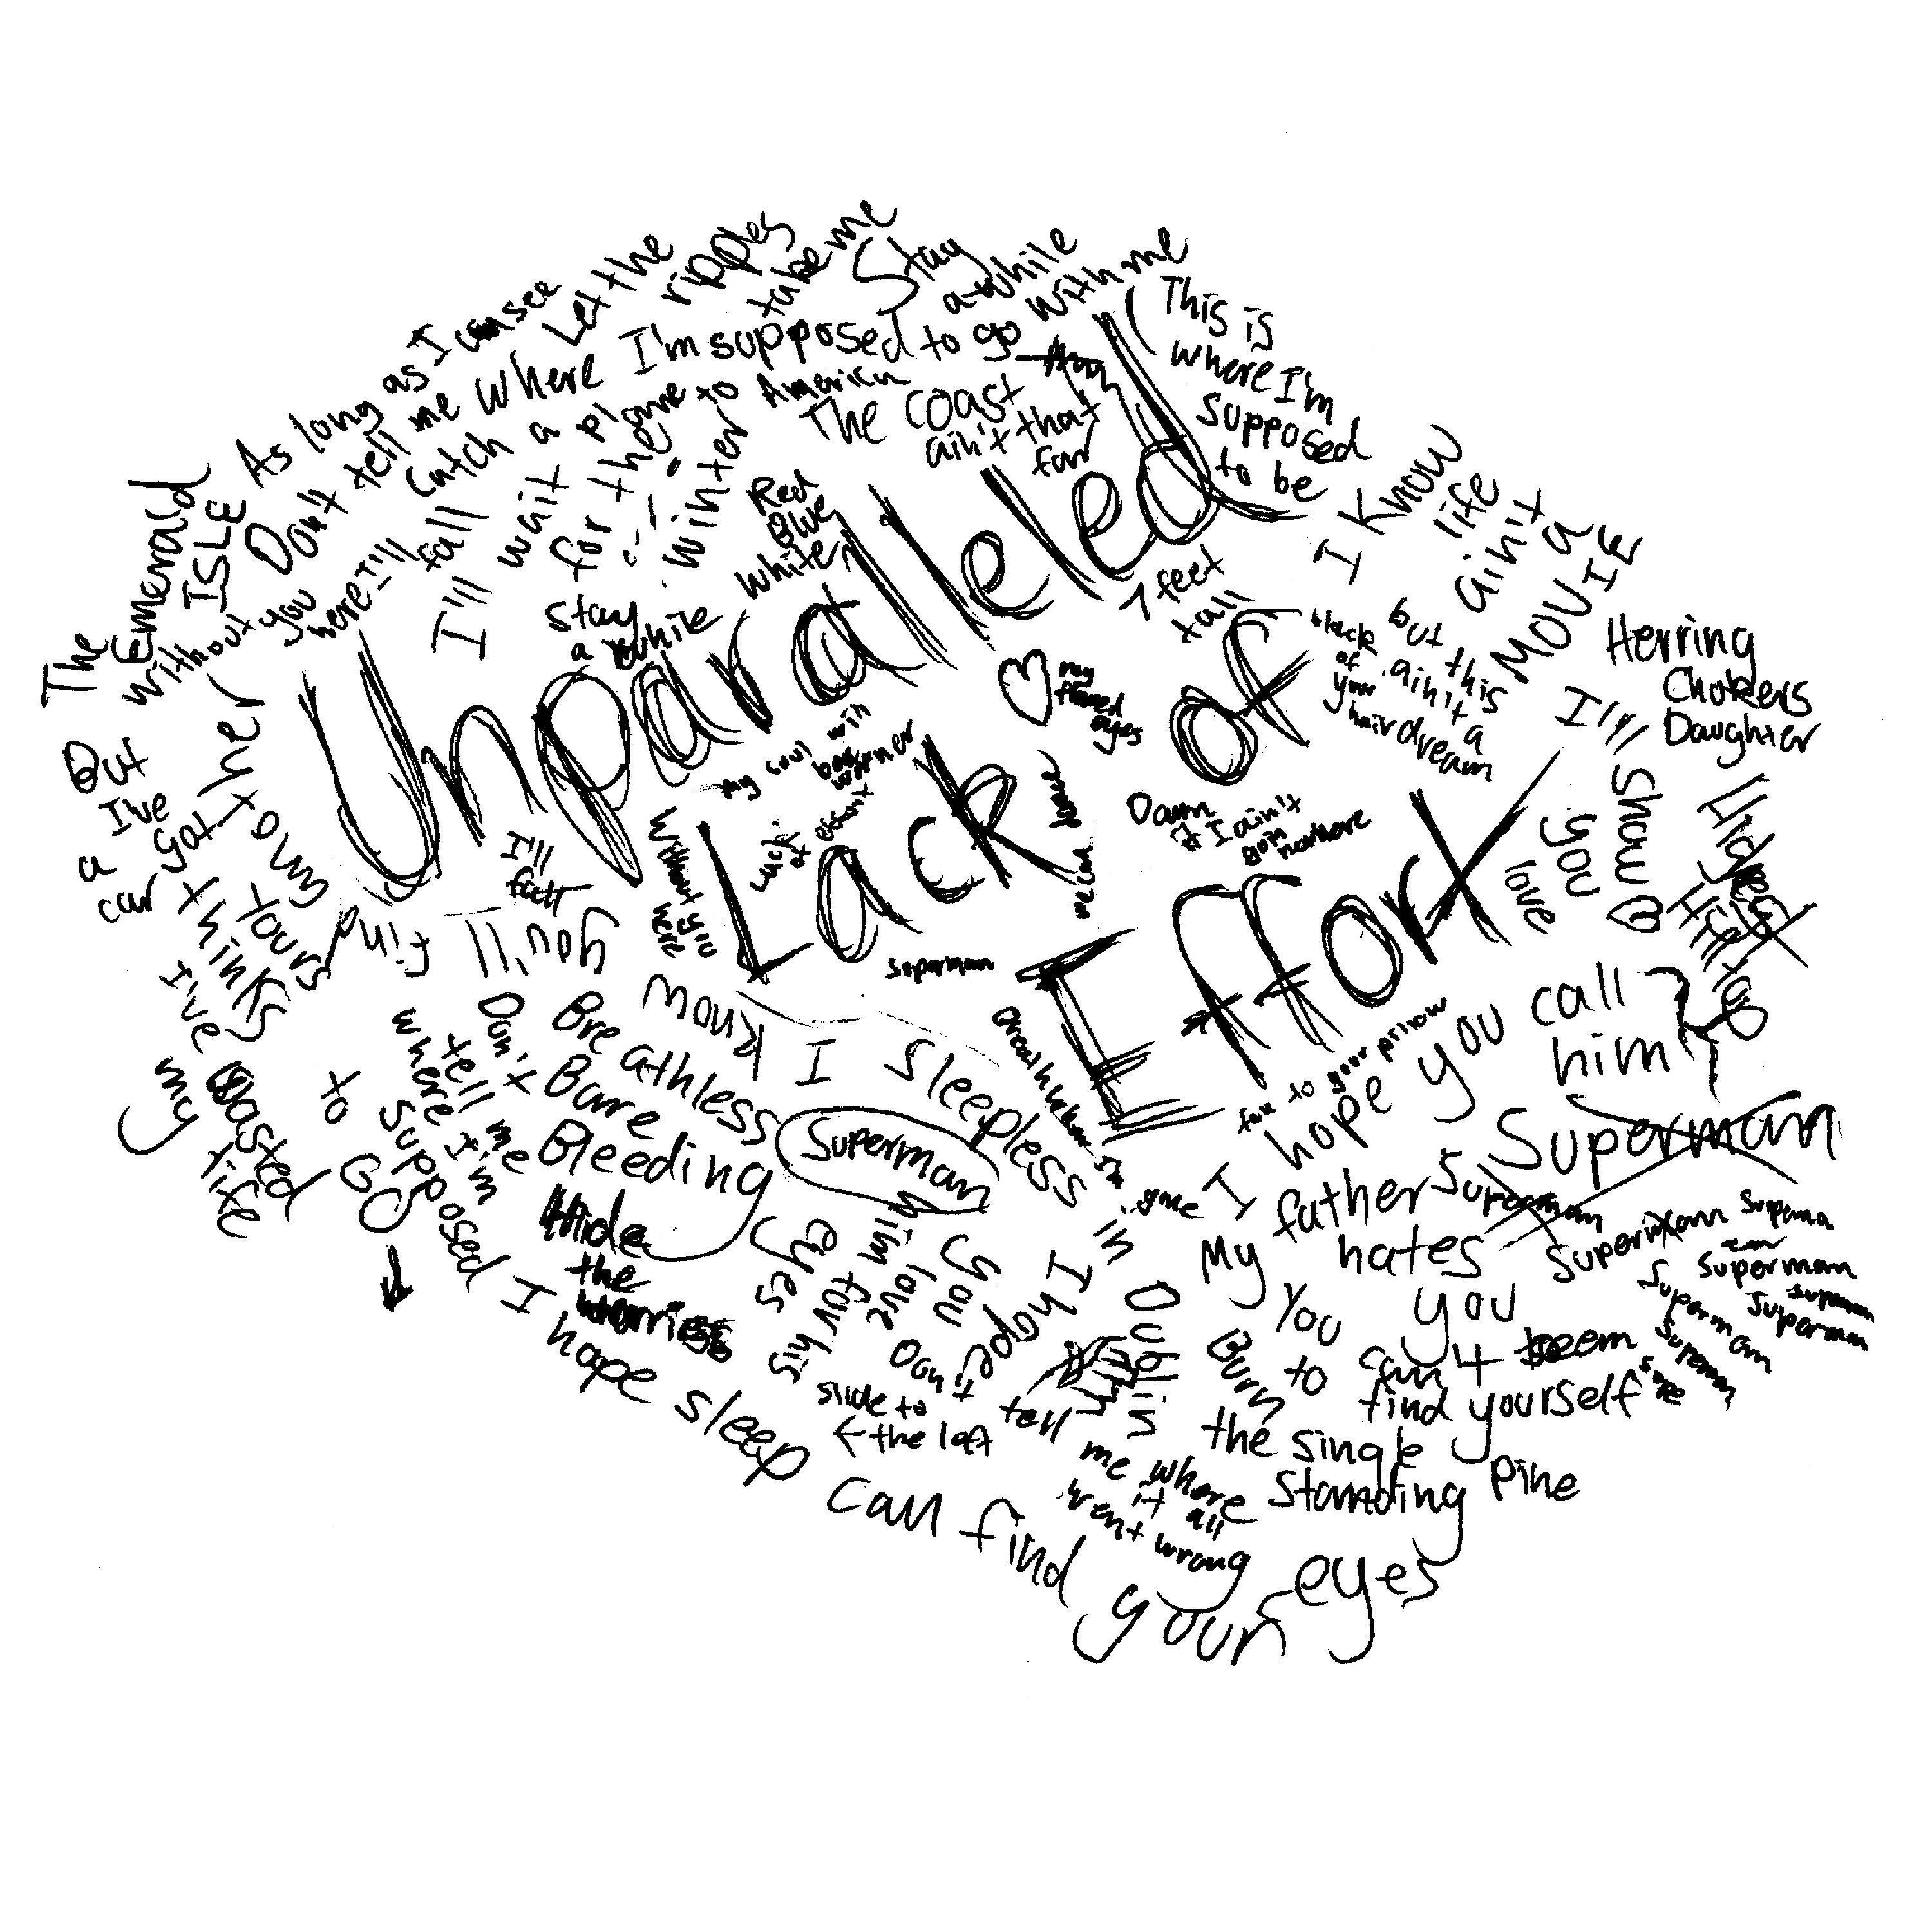 Let the
ripples
take me
Stay
awhile
with me
As long as I can see
Don't tell me where I'm supposed to go
Catch a plane to America
The coast
ain't that
far
This is
where I'm
supposed
to be
The
Emerald
ISLE
without you
here I'll
fall
I'll wait
for the
winter
Red
Blue
White
Stay
a while
Unparalleled
Lack of
Effort
7 feet
tall
I know
life
ain't
a
MOVIE
but this
ain't a
dream
black
of
your
hair
Herring
Chokers
Daughter
I'll
show
you
love
my
flared
eyes
my soul with
warmer
Lack
of effort
Damn
if I ain't
goin
nowhere
But
I've
got
a
car
her
town
yours
thinks
I've
wasted
my
life
I'll
fall
Without you
here
I know
you'll
find
superman
Breathless
Bare
Bleeding
Don't
tell me
where I'm
supposed
to
GO
Superman
Sleepless
in
Dublin
to your pillow
I hope you call
him
Superman
My father
hates
you
Superman
Superman
Superman
Superman
Superman
Superman
Hide
the
worries
I hope
you
love
him
for his
eyes
Don't
tell
me where
it all
went wrong
slide to
the left
You can't seem
to find yourself
Burn
the single
standing pine
I hope sleep can find your eyes